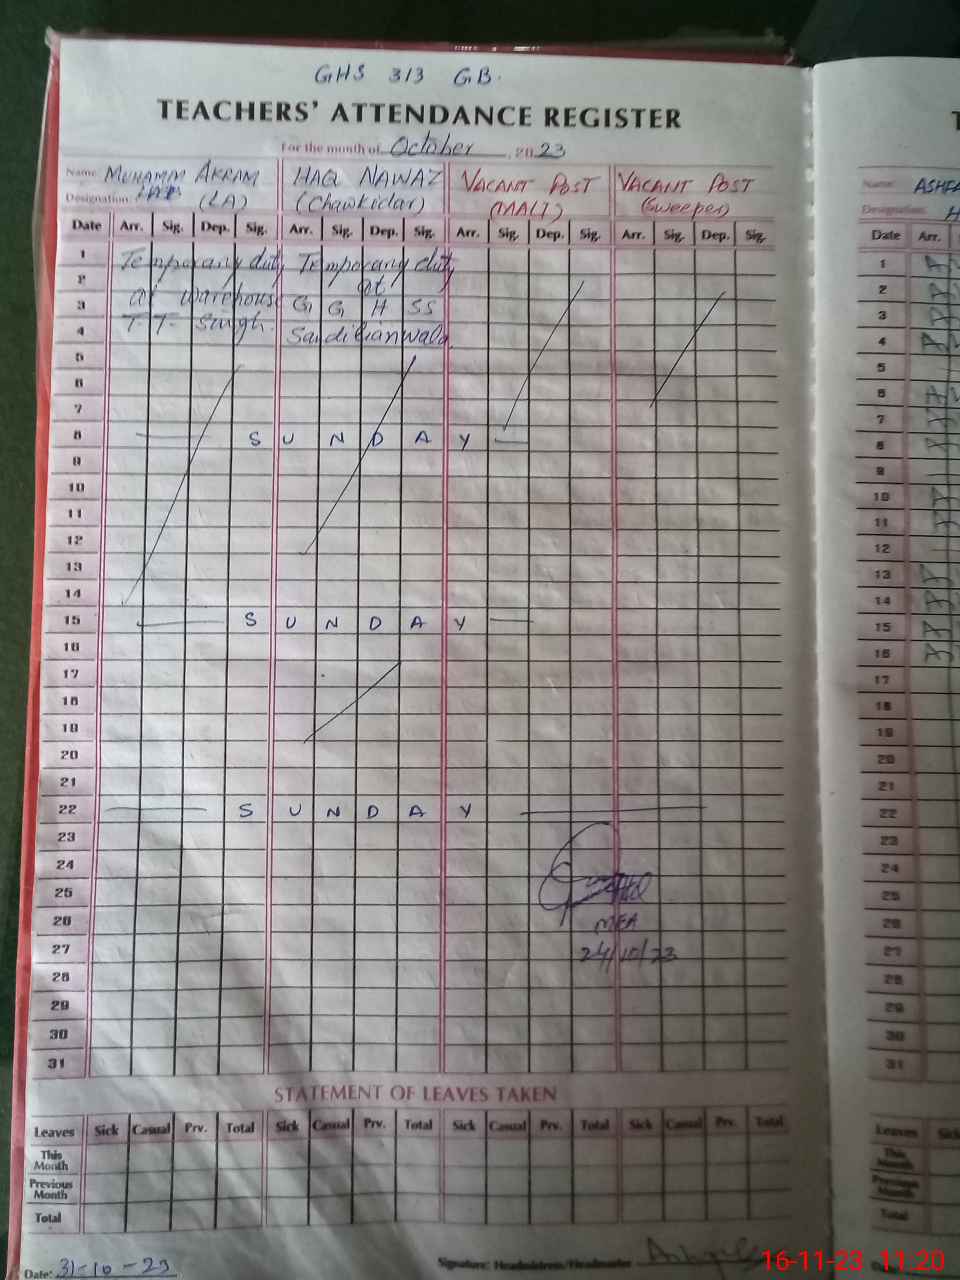 GHS 313 GB.
TEACHERS' ATTENDANCE REGISTER
For the month of October, 2023
Name: MUHAMM AKRAM HAQ NAWAZ VACANT POST VACANT POST
Designation: (LA) (Chawkidar) (MALI) (Sweeper)
Date Arr. Sig. Dep. Sig. Arr. Sig. Dep. Sig. Arr. Sig. Dep. Sig. Arr. Sig. Dep. Sig.
1 Temporary duty Temporary duty
2 at
3 at warehouse G G H SS
4 T.T. Singh. Sandilianwala.
5
6
7
8 SUNDAY
9
10
11
12
13
14
15 SUNDAY
16
17
18
19
20
21
22 SUNDAY
23
24
25
26 MEA
27 24/10/23
28
29
30
31
STATEMENT OF LEAVES TAKEN
Leaves Sick Casual Prv. Total Sick Casual Prv. Total Sick Casual Prv. Total Sick Casual Prv. Total
This Month
Previous Month
Total
Date: 31-10-23 Signature: Headmistress/Headmaster
16-11-23 11:20
Name:
Designation:
Date Arr.
1
2
3
4
5
6
7
8
9
10
11
12
13
14
15
16
17
18
19
20
21
22
23
24
25
26
27
28
29
30
31
Leaves
This Month
Previous Month
Total